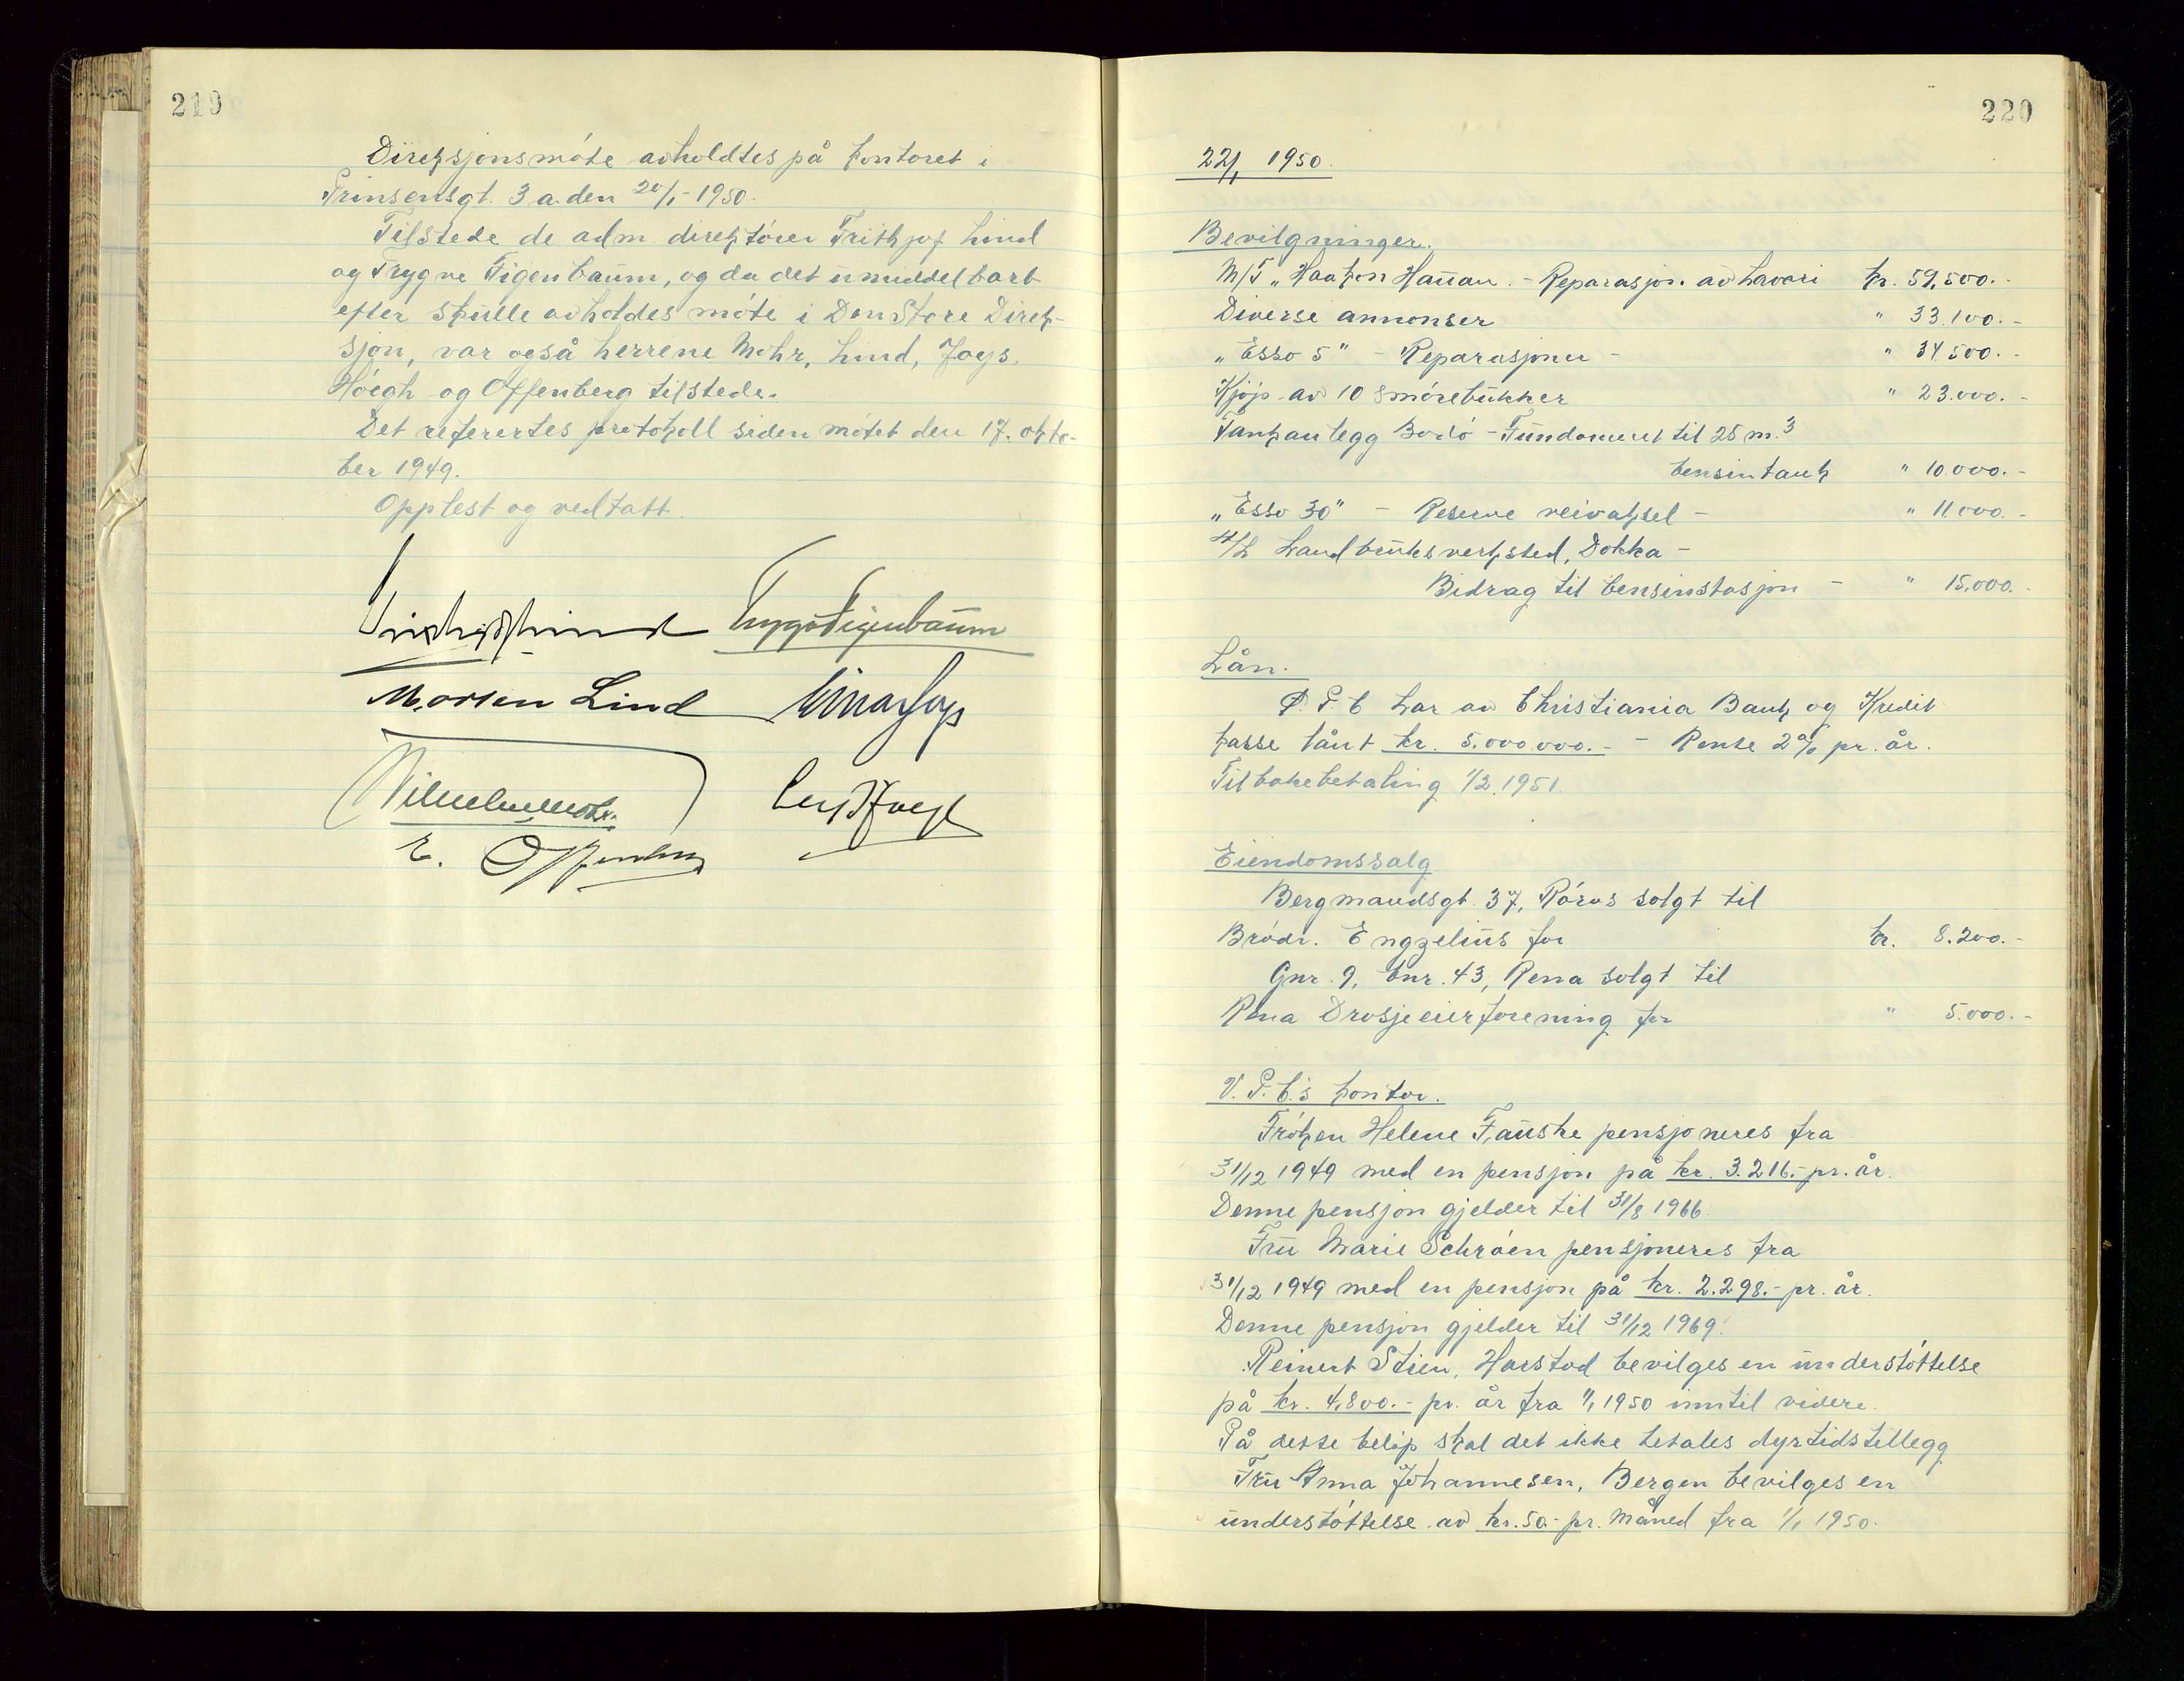 219
Direksjonsmöte avholdtes på kontoret i
Prinsensgt. 3 a. den 20/1-1950.
Tilstede de adm. direktörer Frithjof Lind
og Trygve Figenbaum, og da det umiddelbart
efter skulle avholdes möte i Den Store Direk-
sjon, var også herrene Mohr, Lind, Joys,
Höegh og Offenberg tilstede.
Det referertes protokoll siden mötet den 17. okto-
ber 1949.
Opplest og vedtatt.
Frithjof Lind Trygve Figenbaum
Morten Lind Einar Joys
Wilhelm Mohr
E. Offenberg
220
22/1 1950.
Bevilgninger.
M/T "Haakon Hauan. - Reparasjon av havari kr. 59,500.-
Diverse annonser " 33.100.-
"Esso 5" - Reparasjoner - " 34.500.-
Kjöp av 10 smörebukker " 23.000.-
Tankanlegg Bodö - Fundament til 25 m.3
bensintank " 10.000.-
"Esso 30" - Reserve veivaksel - " 11.000.-
A/L Landbruksverksted, Dokka -
Bidrag til bensinstasjon - " 15.000.-
Lån.
D. P. C har av Christiania Bank og Kredit-
kasse lånt kr. 5.000.000.- - Rente 2% pr. år.
Tilbakebetaling 1/2. 1951.
Eiendomssalg
Bergmandsgt. 37, Röros solgt til
Brödr. Engzelius for kr. 8.200.-
Gnr. 9, bnr. 43, Rena solgt til
Rena Drosjeeierforening for " 5.000.-
V. P. C.'s kontor.
Fröken Helene Fauske pensjoneres fra
31/12 1949 med en pensjon på kr. 3.216.- pr. år.
Denne pensjon gjelder til 31/8 1966.
Fru Marie Schröen pensjoneres fra
31/12 1949 med en pensjon på kr. 2.298.- pr. år.
Denne pensjon gjelder til 31/12 1969.
Reinert Stien, Harstad bevilges en understöttelse
på kr. 4.800.- pr. år fra 1/1 1950 inntil videre.
På dette belöp skal det ikke betales dyrtidstillegg
Fru Anna Johannesen, Bergen bevilges en
understöttelse av kr. 50.- pr. måned fra 1/1 1950.